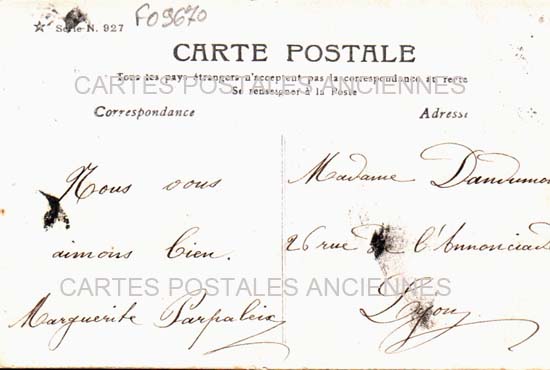 ☆ Série N. 927
F09670
CARTE POSTALE
Tous les pays étrangers n'acceptent pas la correspondance au recto
Se renseigner à la Poste
CARTES POSTALES ANCIENNES
Correspondance
Adresse
Nous vous
aimons bien.
Marguerite Parpaleix
Madame Dandumon
26 rue de l'Annonciade
Lyon
CARTES POSTALES ANCIENNES